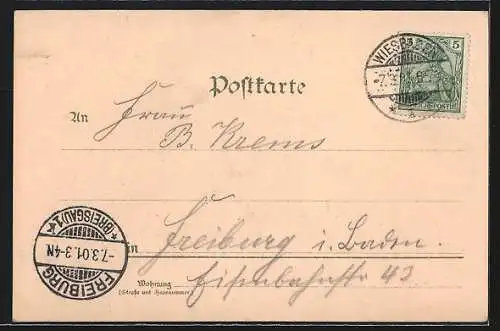 WIESBADEN
5
Postkarte
An Frau
B. Krems
FREIBURG
-7.3.01.3-4N.
*(BREISGAU)1*
in Freiburg i. Baden.
Wohnung Eisenbahnstr 43
(Straße und Hausnummer)